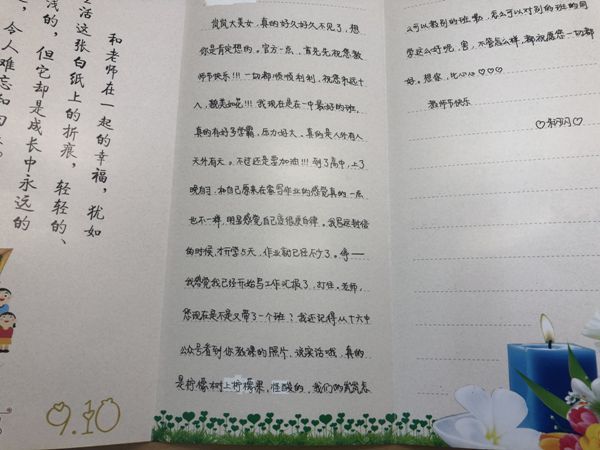 和老师在一起的幸福，犹如
生活这张白纸上的折痕，轻轻的、
浅浅的，但它却是成长中永远的
，令人难忘和回
9.10
大美女，真的好久好久不见了，想
你是肯定想的。官方一点，首先祝您教
师节快乐!!!一切都顺顺利利，祝您永远十
八，貌美如花!!!我现在是在一中最好的班，
真的有好多学霸，压力好大，真的是人外有人
天外有天。不过还是要加油!!!到了高中，上了
晚自习，和自己原来在家写作业的感觉真的一点
也不一样，明显感觉自己变很多自律。我写这封信
的时候，才开学5天，作业就已经不少了。停——
我感觉我已经开始写工作汇报了，打住。老师，
您现在是不是又带了一个班？我还记得从十六中
公众号看到你教课的照片，说实话哦，真的
是柠檬树上柠檬果，怪酸的，我们的
么可以教别的班嘞，怎么可以对别的班的同
学这么好呢，害，不管怎么样，都祝愿您一切都
好。想你，比心心♡♡♡
教师节快乐